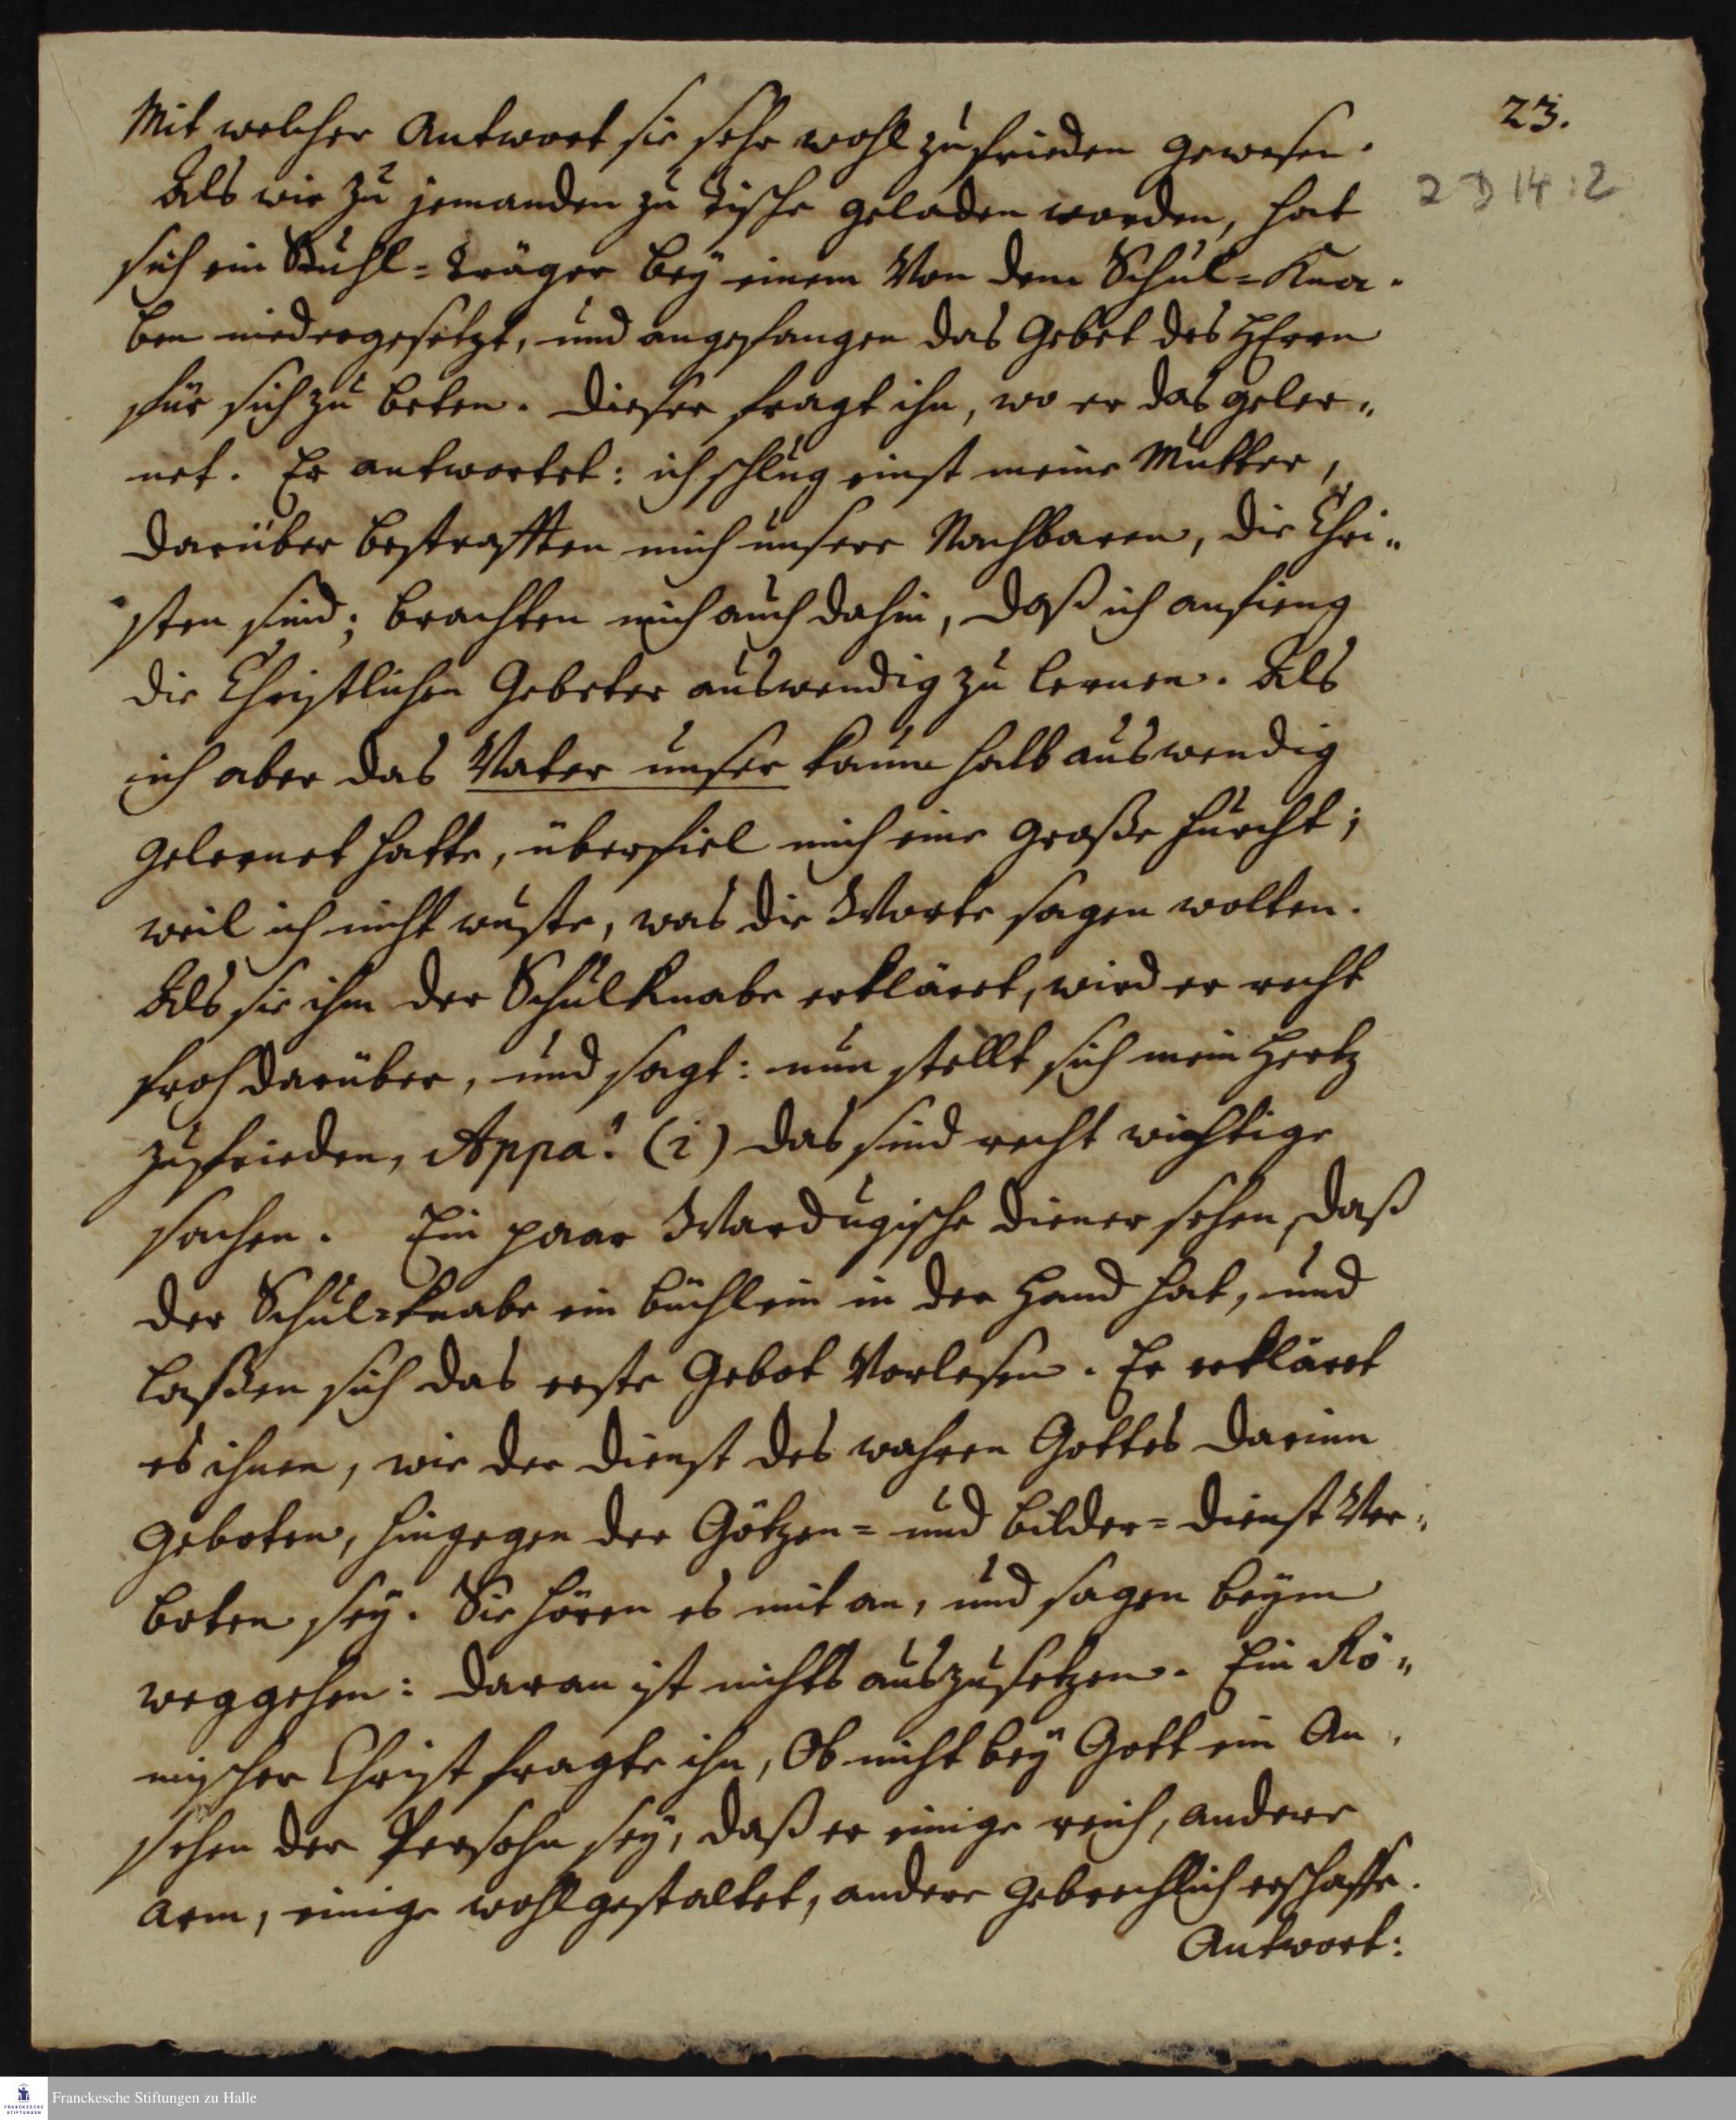 23.
2 D 14 : 2
Mit welcher Antwort sie sehr wohl zufrieden gewesen.
Als wir zu jemanden zu Tische geladen worden, hat
sich ein Stuhl=Träger bey einem von dem Schul=Kna-
ben niedergesetzt, und angefangen das Gebet des HErrn
für sich zu beten. Dieser fragt ihn, wo er das geler„
net. Er antwortet: ich schlug einst meine Mutter,
darüber bestrafften mich unsere Nachbaren, die Chri„
sten sind; brachten mich auch dahin, daß ich anfieng
die Christlichen Gebeter auswendig zu lernen. Als
ich aber das Vater unser kaum halb auswendig
gelernet hatte, überfiel mich eine große Furcht;
weil ich nicht wuste, was die Worte sagen wolten.
Als sie ihm der Schulknabe erkläret, wird er recht
froh darüber, und sagt: nun stellt sich mein Hertz
zufrieden, Appa! (i) das sind recht wichtige
sachen. Ein paar Wardugische Diener sehen, daß
der Schul=knabe ein büchlein in der Hand hat, und
laßen sich das erste Gebot vorlesen. Er erkläret
es ihnen, wie der Dienst des wahren Gottes darinn
geboten, hingegen der Götzen= und bilder=dienst ver„
boten sey. Sie hören es mit an, und sagen beym
weggehen: daran ist nichts auszusetzen. Ein Rö„
mischer Christ fragte ihn, Ob nicht bey Gott ein An-
sehen der Persohn sey, daß er einige reich, andere
arm, einige wohlgestaltet, andere gebrechlich erschaffe.
Antwort:
FRANCKESCHE STIFTUNGEN
Franckesche Stiftungen zu Halle